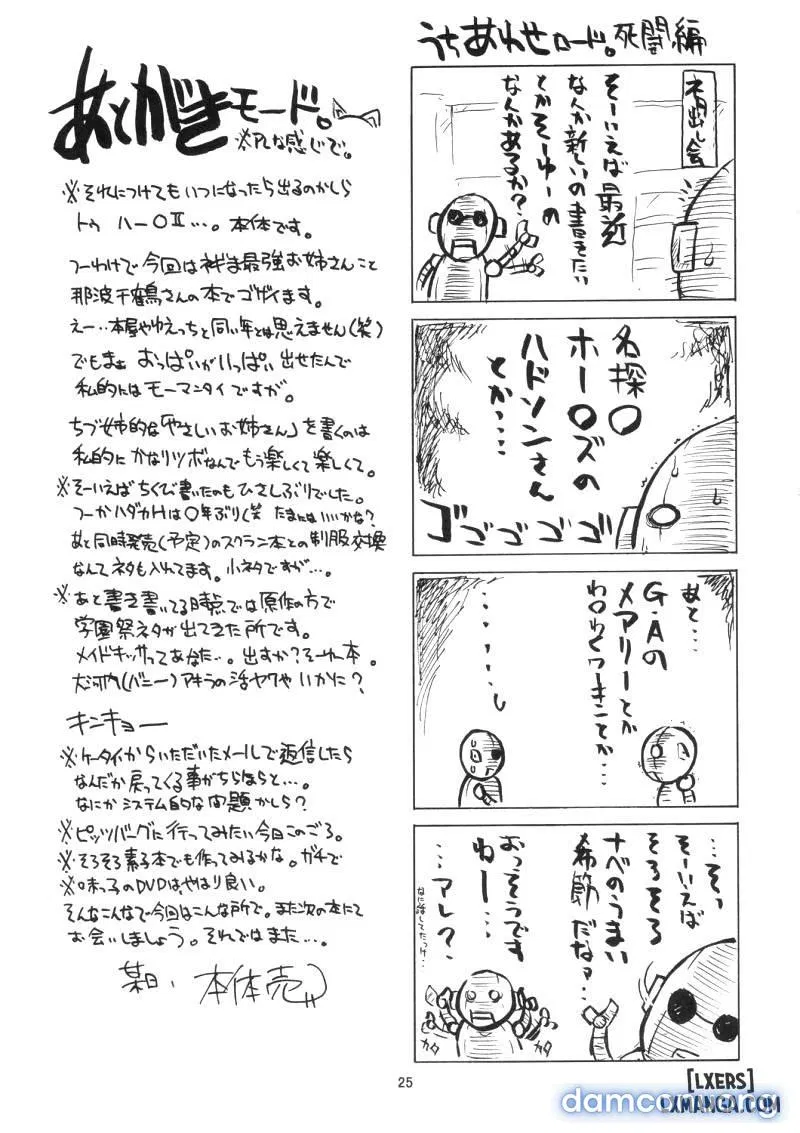 うちあわせロード。死闘編
ネタ出し会
そーいえば最近
なんか新しいの書きたい
とかそーゆーの
なんかあるか?
名探〇
ホー〇ズの
ハドソンさん
とか・・・・
ゴゴゴゴゴ
あと・・・
G・Aの
メアリーとか
わ〇わくワーキンとか・・・
・・・そっ
そーいえば
そろそろ
ナベのうまい
希節だなァ・・・
おっそうです
ねー・・・
・・・アレ?
なに話してたっけ・・
カタ
カタ
あとがきモード。
※PLな感じで。
※それにつけてもいつになったら出るのかしら
トゥ ハー〇Ⅱ・・・。本体です。
つーわけで今回はネギま最強お姉さんこと
那波千鶴さんの本でゴザイます。
えー・・本屋やゆえっちと同い年とは思えません(笑)
でもまぁ おっぱいがいっぱい出せたんで
私的にはモーマンタイですが。
ちづ姉的な「やさしいお姉さん」を書くのは
私的にかなりツボなんでもう楽しくて楽しくて。
※そーいえばちくび書いたのもひさしぶりでした。
つーかハダカHは〇年ぶり(笑 たまにはいいかな?
あと同時発売(予定)のスクラン本との制服交換
なんてネタも入れてます。小ネタですが・・・。
※あと書き書いてる時点では原作の方で
学園祭ネタが出てきた所です。
メイドキッサってあなた・・。出すか?そーゆー本。
大河内(バニー)アキラの活ヤクやいかに?
キンキョー
※ケータイからいただいたメールで返信したら
なんだか戻ってくる事がちらほらと・・・。
なにかシステム的な問題かしら?
※ピッツバーグに行ってみたい今日このごろ。
※そろそろ素子本でも作ってみるかな。ガチで
※味っ子のDVDはやはり良い。
そんなこんなで今回はこんな所で。また次の本にて
お会いしましょう。それではまた・・・。
某日、本体売
25
[LXERS]
LXMANGA.COM